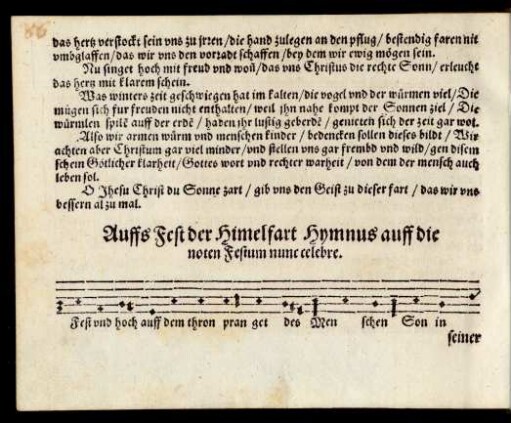 86
das hertz verstockt sein vns zu jrzen/die hand zulegen an den pflug/ bestendig faren nit
vmbglaffen/das wir vns den vorradt schaffen/bey dem wir ewig mögen sein.
Nu singet hoch mit freud vnd won/das vns Christus die rechte Sonn/erleucht
das hertz mit klarem schein.
Was winters zeit geschwiegen hat im kalten/die vogel vnd der würmen viel/Die
mügen sich fur freuden nicht enthalten/ weil jhn nahe kompt der Sonnen ziel / Die
würmlen spilē auff der erdē / haden jhr lustig geberdē / genieten sich der zeit gar wol.
Also wir armen würm vnd menschen kinder / bedencken sollen dieses bildt / Wir
achten aber Christum gar viel minder/vnd stellen vns gar frembd vnd wild/gen disem
schein Götlicher klarheit/Gottes wort vnd rechter warheit / von dem der mensch auch
leben sol.
O Jhesu Christ du Sonne zart / gib vns den Geist zu dieser fart / das wir vns
bessern al zu mal.
Auffs Fest der Himelfart Hymnus auff die
noten Festum nunc celebre.
Fest vnd hoch auff dem thron pran get des Men schen Son in
seiner